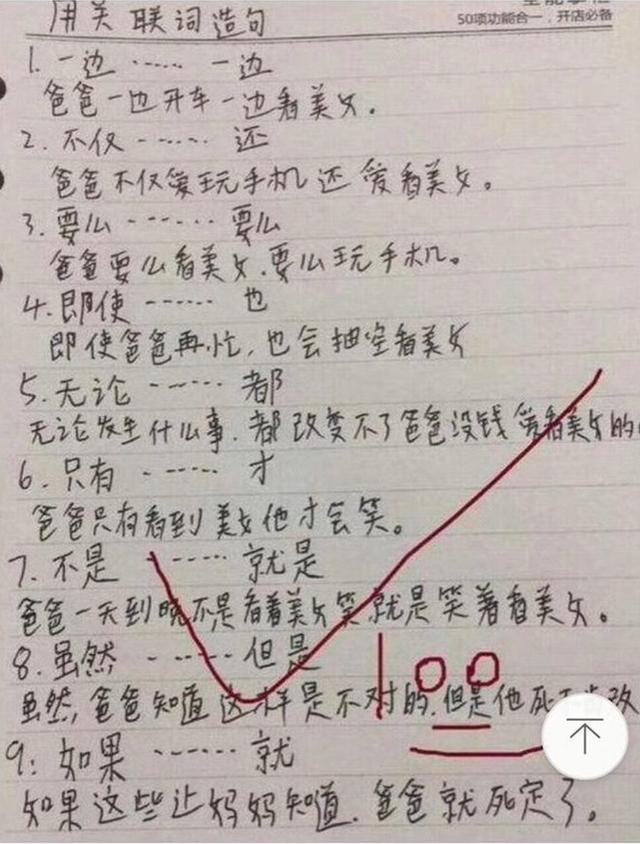 用关联词造句
50项功能合一，开店必备
1. 一边 ······ 一边
爸爸一边开车一边看美女.
2. 不仅 ······ 还
爸爸不仅爱玩手机还爱看美女。
3. 要么 ······ 要么
爸爸要么看美女.要么玩手机。
4. 即使 ······ 也
即使爸爸再忙，也会抽空看美女
5. 无论 ······ 都
无论发生什么事.都改变不了爸爸没钱爱看美女的
6. 只有 ······ 才
爸爸只有看到美女他才会笑。
7. 不是 ······ 就是
爸爸一天到晚不是看着美女笑就是笑着看美女。
8. 虽然 ······ 但是
虽然，爸爸知道这样是不对的.但是他死不
100
9: 如果 ······ 就
如果这些让妈妈知道.爸爸就死定了。